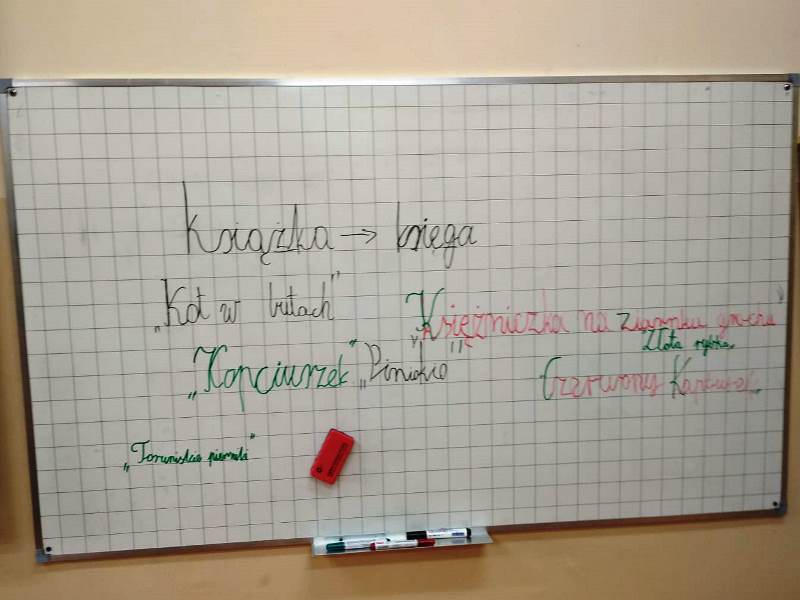 Książka → księga
„Kot w butach”
„Księżniczka na ziarnku grochu”
Złota rybka
„Kopciuszek” „Pinokio”
Czerwony Kapturek
„Toruńskie pierniki”